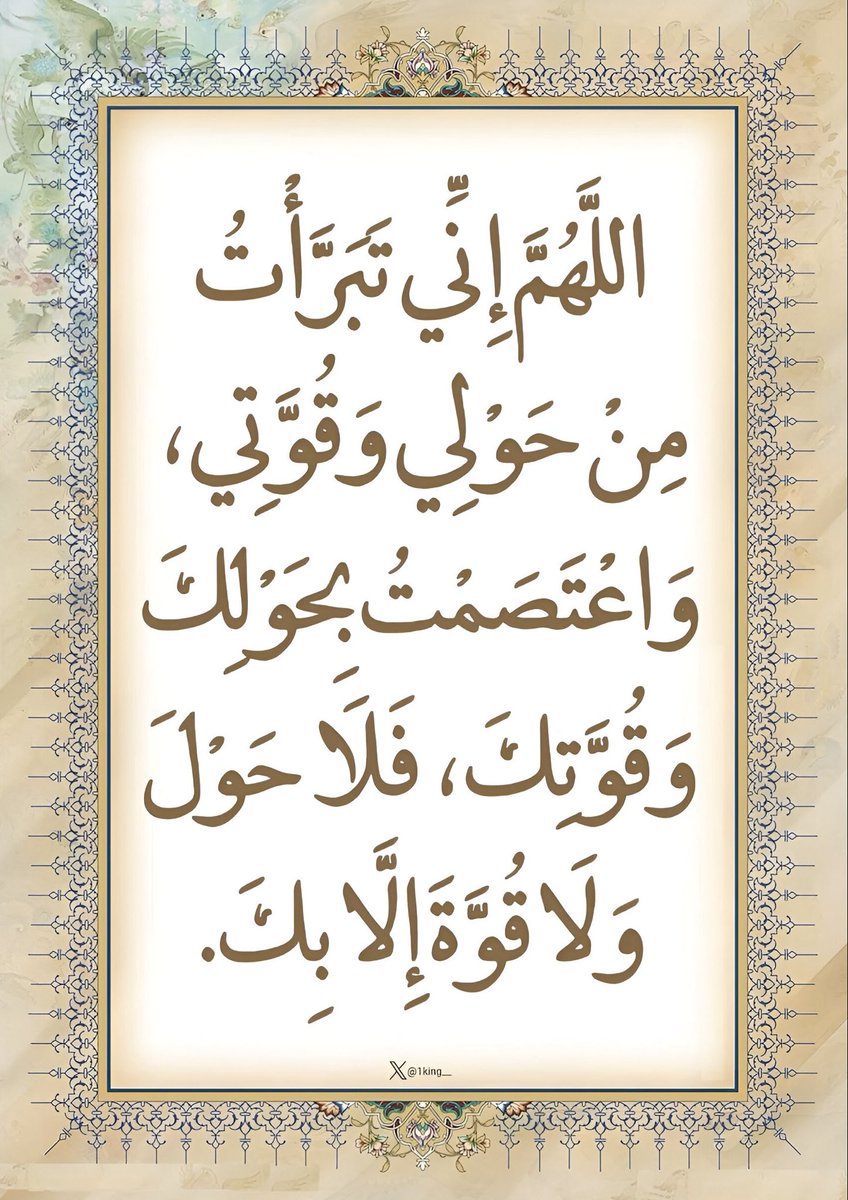 اللَّهُمَّ إِنِّي تَبَرَّأْتُ
مِنْ حَوْلِي وَقُوَّتِي،
وَاعْتَصَمْتُ بِحَوْلِكَ
وَقُوَّتِكَ، فَلَا حَوْلَ
وَلَا قُوَّةَ إِلَّا بِكَ.
𝕏@1king__